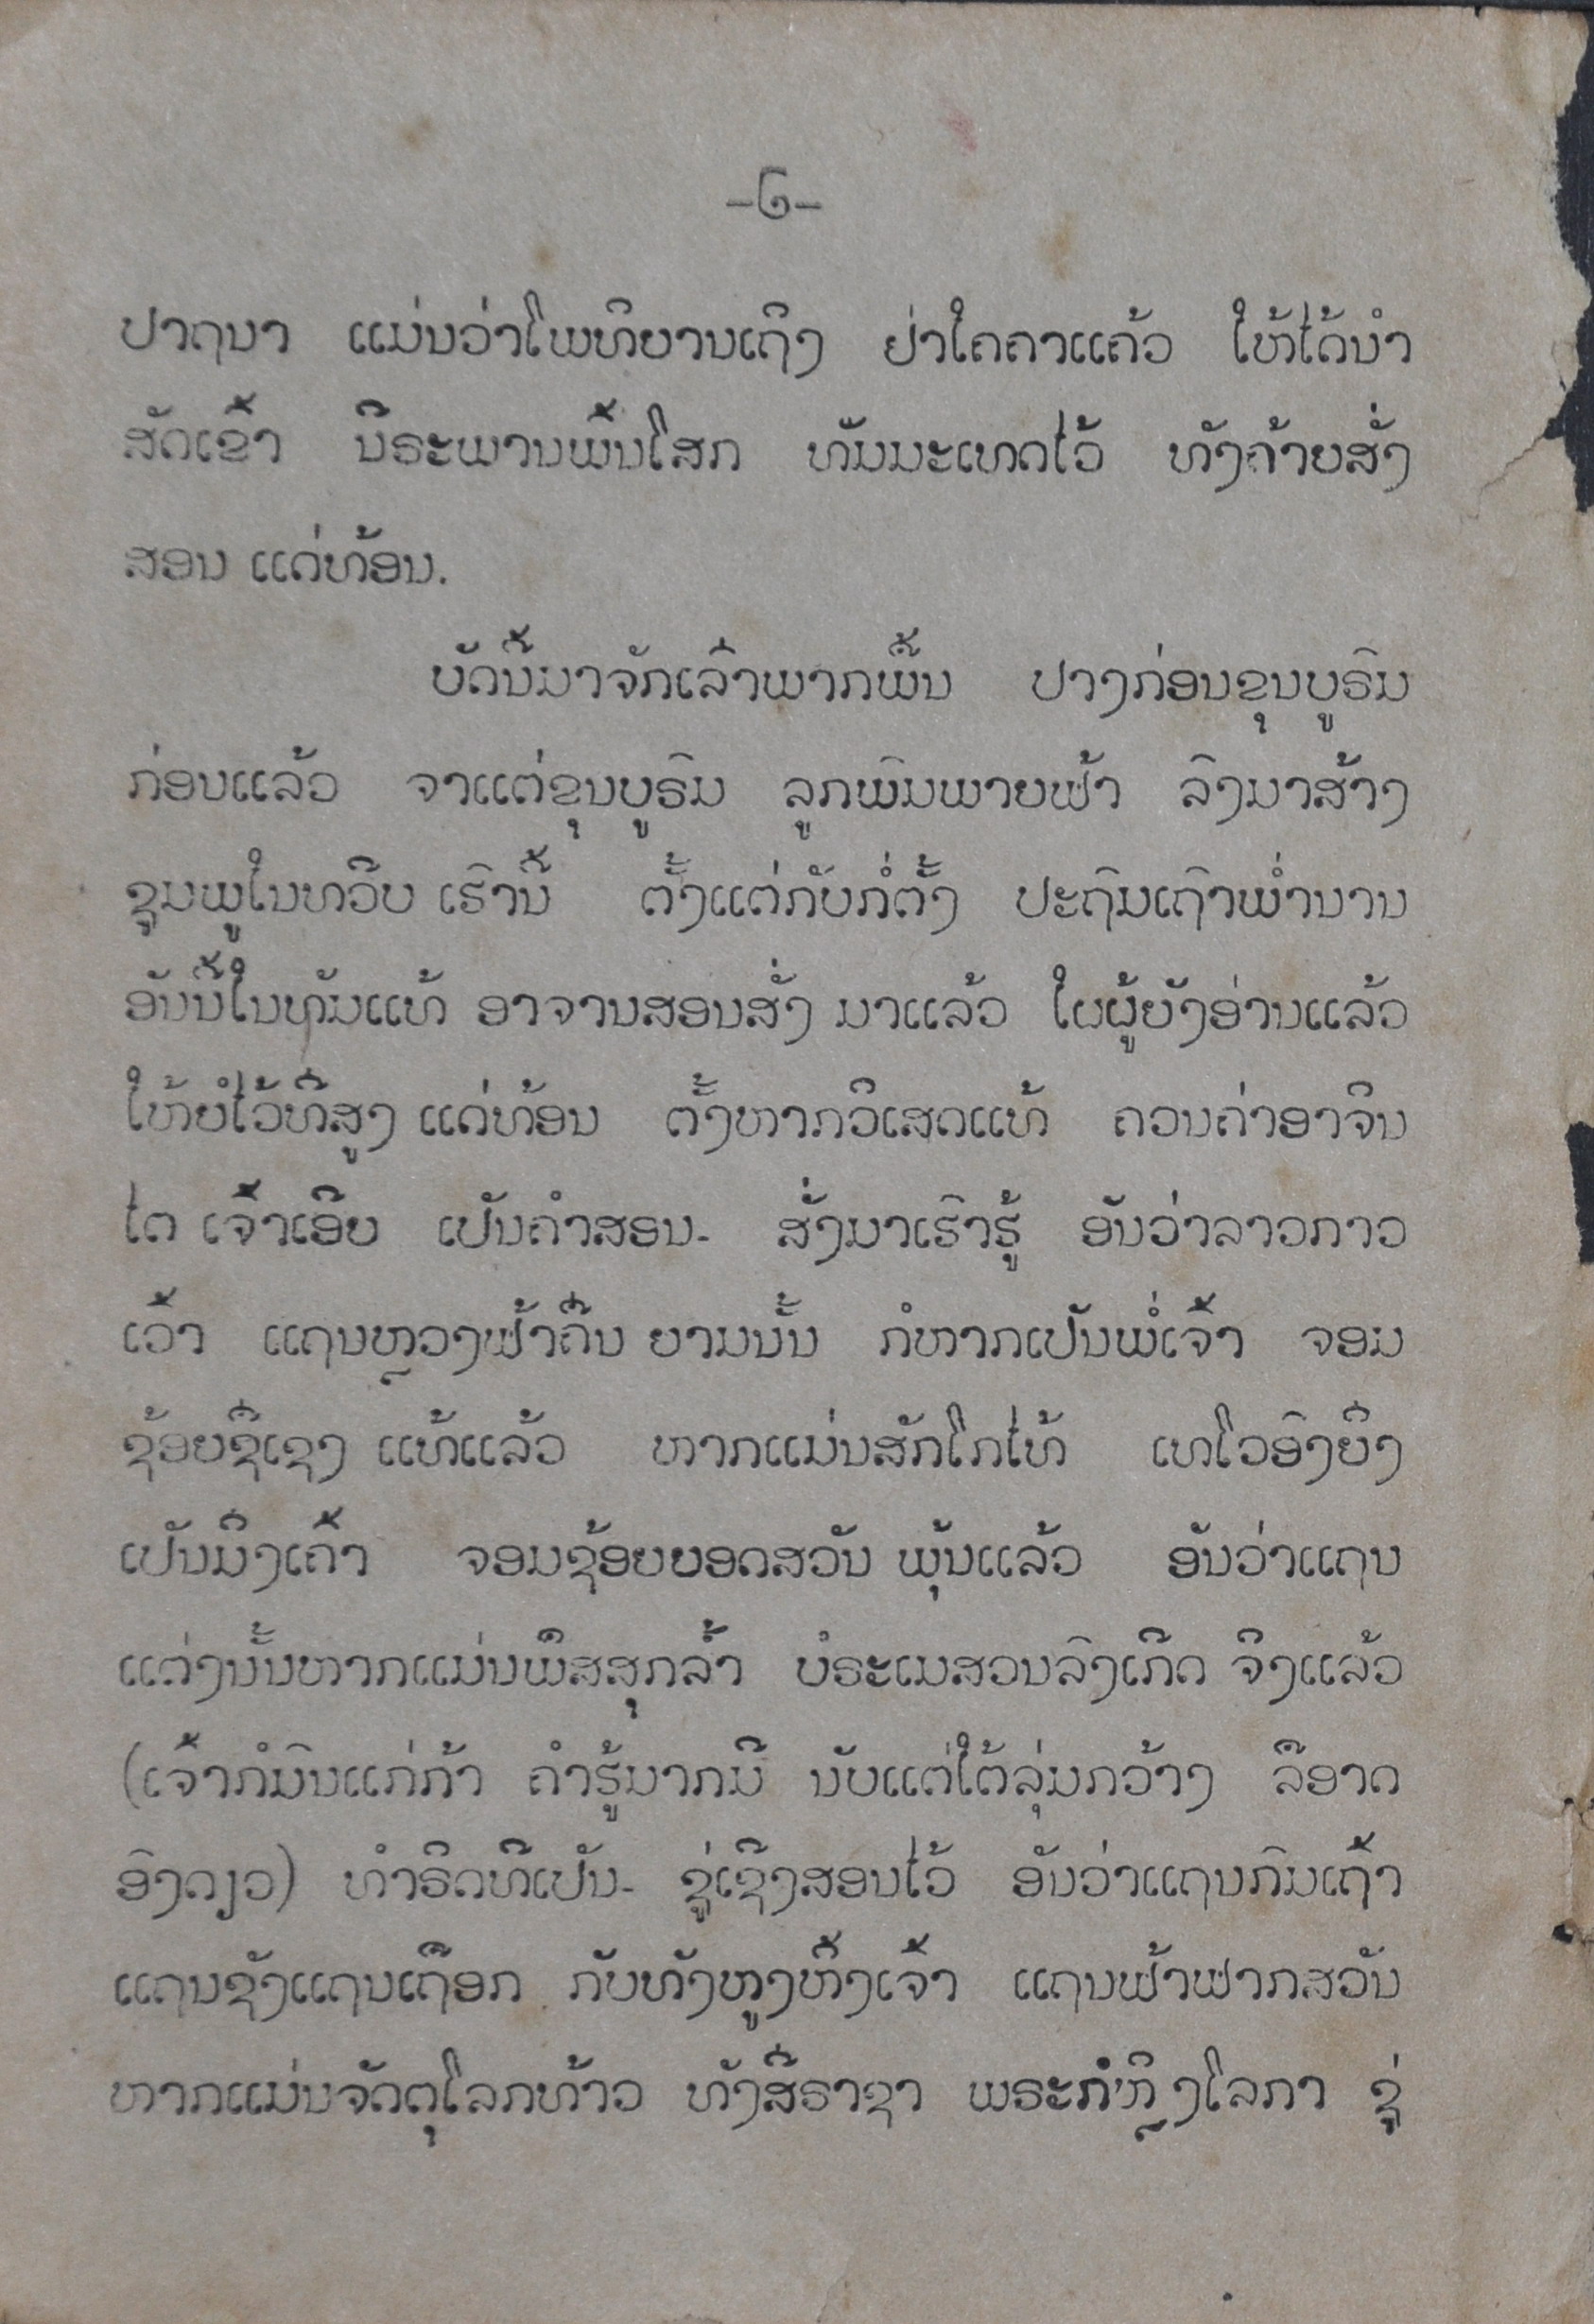 -໒-
ປາຖນາ ແມ່ນວ່າໂພທິຍານເຖິງ ຢ່າໃຄຄາແຄ້ວ ໃຫ້ໄດ້ນຳ
ສັດເຂົ້າ ນີຣະພານພົ້ນໂສກ ທັມມະເທດໄວ້ ທັງຄ້າຍສັ່ງ
ສອນ ແດ່ທ້ອນ.
ບັດນີ້ມາຈັກເລົ່າພາກພື້ນ ປາງກ່ອນຂຸນບູຣົມ
ກ່ອນແລ້ວ ຈາແຕ່ຂຸນບູຣົມ ລູກພົມພາຍຟ້າ ລົງມາສ້າງ
ຊູມພູໃນທວີບ ເຮົານີ້ ຕັ້ງແຕ່ກັບກໍ່ຕັ້ງ ປະຖົມເຖົາພ່ຳນານ
ອັນນີ້ໃນທັມແທ້ ອາຈານສອນສັ່ງ ມາແລ້ວ ໃຜຜູ້ຍັງອ່ານແລ້ວ
ໃຫ້ຍໍໄວ້ທີ່ສູງ ແດ່ທ້ອນ ຕັ້ງຫາກວິເສດແທ້ ຄວນຄ່າອາຈິນ
ໄຕ ເຈົ້າເອີຍ ເປັນຄຳສອນ- ສັ່ງມາເຮົາຮູ້ ອັນວ່າລາວກາວ
ເວົ້າ ແຖນຫຼວງຟ້າຄື່ນ ຍາມນັ້ນ ກໍຫາກເປັນພໍ່ເຈົ້າ ຈອມ
ຊ້ອຍຊື່ເຊງ ແທ້ແລ້ວ ຫາກແມ່ນສັກໂກໄທ້ ເທໂວອົງຍິ່ງ
ເປັນມິ່ງເຄົ້າ ຈອມຊ້ອຍຍອດສວັນ ພຸ້ນແລ້ວ ອັນວ່າແຖນ
ແຕ່ງນັ້ນຫາກແມ່ນພິສສຸກລ້ຳ ບໍຣະເມສວນລົງເກີດ ຈິງແລ້ວ
(ເຈົ້າກໍມົນແກ່ກ້າ ຄຳຮູ້ມາກມີ ນັບແຕ່ໃຕ້ລຸ່ມກວ້າງ ລືອາດ
ອົງດຽວ) ທຳຣິດທີ່ເປັນ- ຊູ່ເຊີງສອນໄວ້ ອັນວ່າແຖນກົມເຖົ້າ
ແຖນຊັງແຖນເຖືອກ ກັບທັງຫຼູງຫຼີ້ງເຈົ້າ ແຖນຟ້າຟາກສວັນ
ຫາກແມ່ນຈັດຕຸໂລກທ້າວ ທັງສີ່ຣາຊາ ພຣະກໍຫຼິງໂລກາ ຊູ່